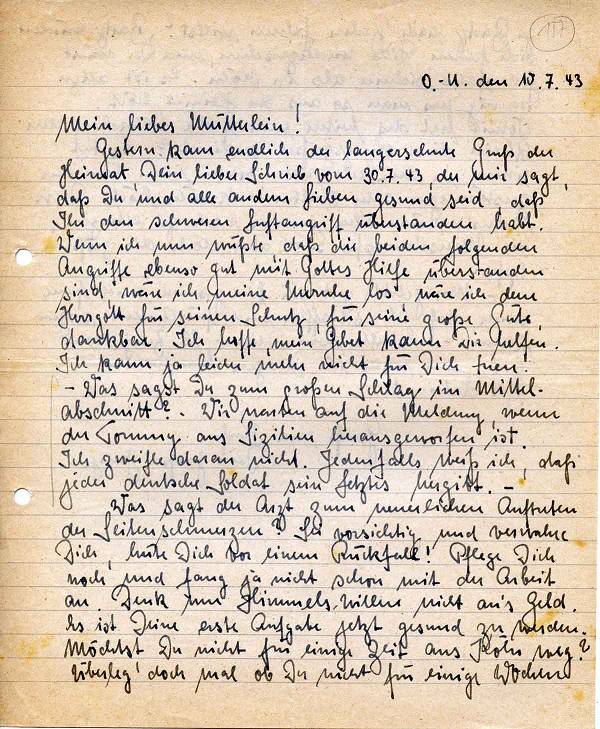 117
O.-U. den 10.7.43
Mein liebes Mütterlein!
Gestern kam endlich der langersehnte Gruß der
Heimat, Dein lieber Schrieb vom 30.7.43, der mir sagt,
daß Du und alle andern Lieben gesund seid, daß
Ihr den schweren Luftangriff überstanden habt.
Wenn ich nun wüßte, daß die beiden folgenden
Angriffe ebenso gut mit Gottes Hilfe überstanden
sind, wäre ich meine Unruhe los, wäre ich dem
Herrgott für seinen Schutz, für seine große Güte,
dankbar. Ich hoffe, mein Gebet kann Dir helfen.
Ich kann ja leider mehr nicht für Dich tuen.
– Was sagst Du zum großen Schlag im Mittel-
abschnitt? – Wir warten auf die Meldung, wenn
der Tommy aus Sizilien herausgeworfen ist.
Ich zweifle daran nicht. Jedenfalls weiß ich, daß
jeder deutsche Soldat sein Letztes hergibt. –
Was sagt der Arzt zum neuerlichen Auftreten
der Seitenschmerzen? Sei vorsichtig und verwahre
Dich, hüte Dich vor einem Rückfall! Pflege Dich
noch, und fang ja nicht schon mit der Arbeit
an. Denk um Himmels willen nicht an's Geld.
Es ist Deine erste Aufgabe jetzt gesund zu werden.
Möchtst Du nicht für einige Zeit aus Köln weg?
Überleg' doch mal ob Du nicht für einige Wochen